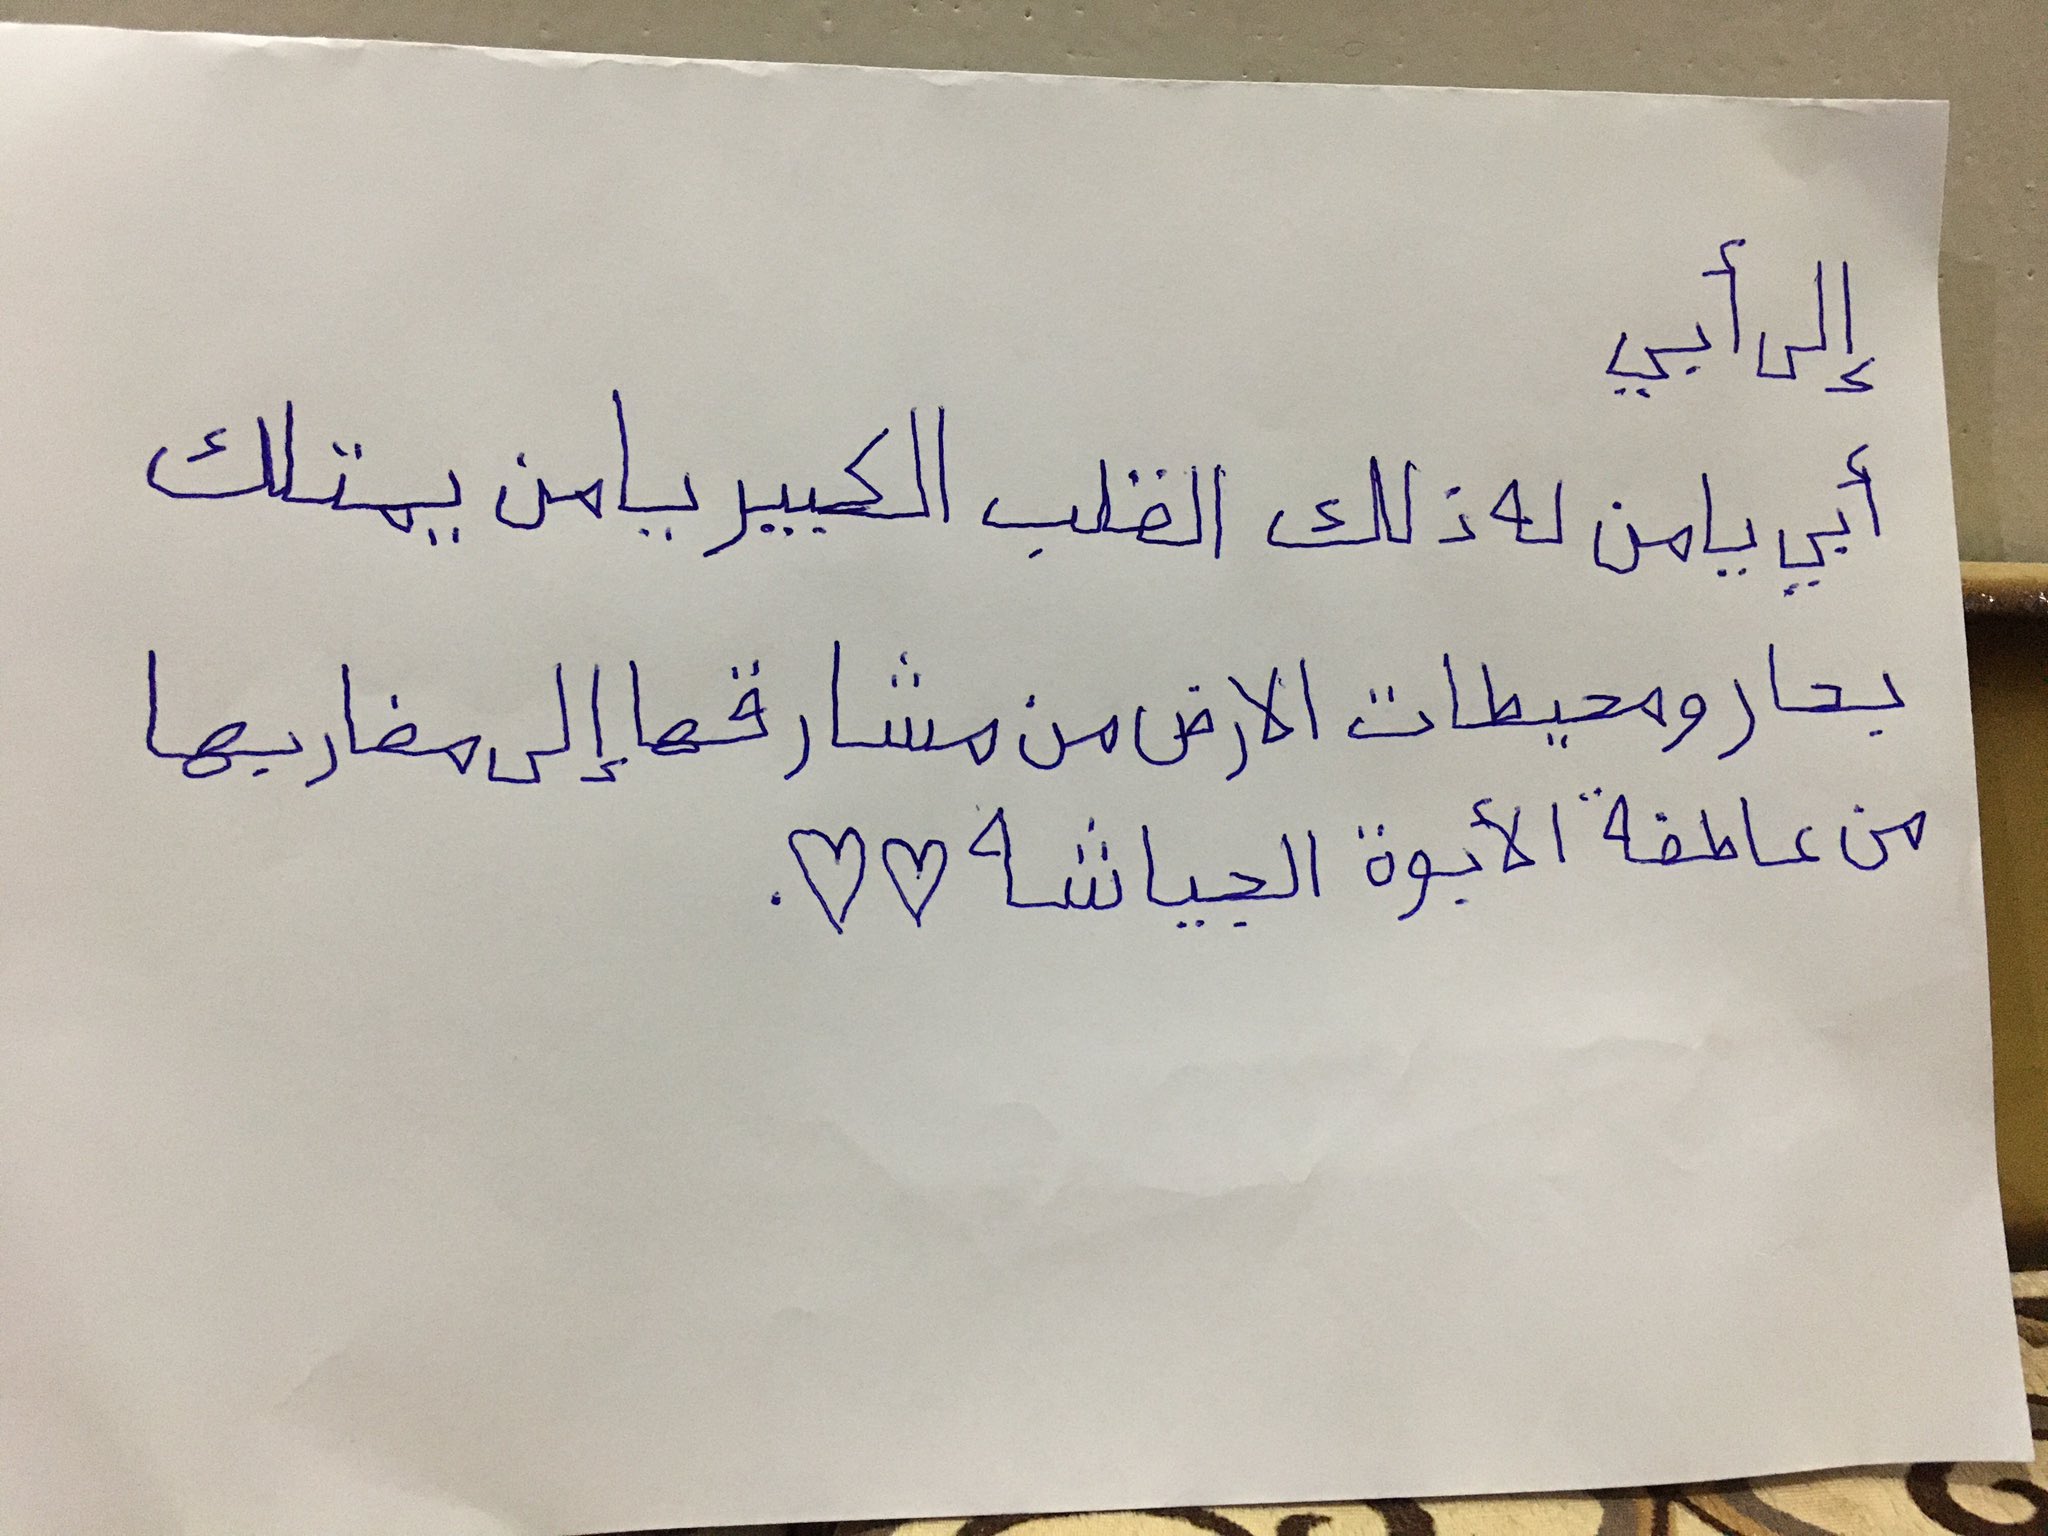 إلى أبي
أبي يا من له ذلك القلب الكبير يا من يمتلك
بحار ومحيطات الارض من مشارقها إلى مغاربها
من عاطفة الأبوة الجياشه ♡♡.